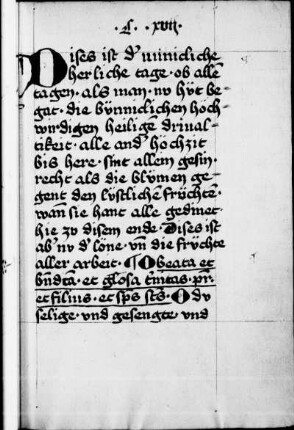 · L · xvii ·
Dises ist d' minicliche
herliche tage · ob alle
tagen · als man · nv hv̍t be-
gat · die bv̍nniclichen hoch-
wirdigen heiligē drinal-
tikeit · alle and' hochzit
bis here · sint allem gesin ·
recht als die blv̍men ge-
gent den lv̍stlichē frv̍chte ·
wan sie hant alle gedinet
hie zv disem ende · Dises ist
ab' nv d' lone · vn̄ die frv̍chte
aller arbeit · ¶ O beata et
bn̄dta · et glosa t'nitas · pr̄ ·
et filius · et sp̄s st̄s · O dv
selige · vnd gesengte · vnd